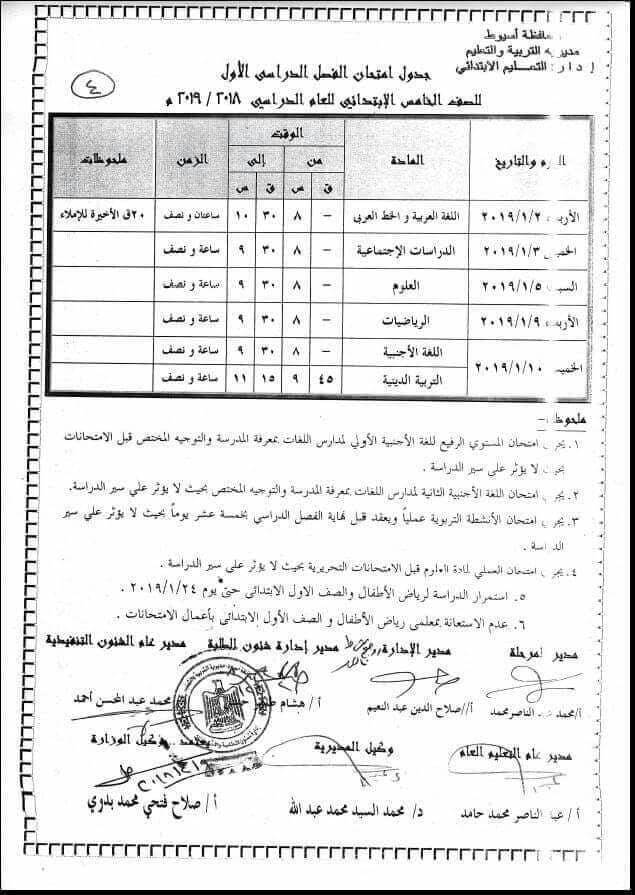 محافظة أسيوط
مديرية التربية والتعليم
إدارة التعليم الابتدائي
٤
جدول امتحان الفصل الدراسى الأول
للصف الخامس الإبتدائي للعام الدراسي ٢٠١٨ / ٢٠١٩ م
اليوم والتاريخ المادة الوقت الزمن ملحوظات
من إلى
ق س ق س
الأربعاء ٢٠١٩/١/٢ اللغة العربية و الخط العربى – ٨ ٣٠ ١٠ ساعتان و نصف ٢٠ق الأخيرة للإملاء
الخميس ٢٠١٩/١/٣ الدراسات الإجتماعية – ٨ ٣٠ ٩ ساعة و نصف
السبت ٢٠١٩/١/٥ العلوم – ٨ ٣٠ ٩ ساعة و نصف
الأربعاء ٢٠١٩/١/٩ الرياضيات – ٨ ٣٠ ٩ ساعة و نصف
الخميس ٢٠١٩/١/١٠ اللغة الأجنبية – ٨ ٣٠ ٩ ساعة و نصف
التربية الدينية ٤٥ ٩ ١٥ ١١ ساعة و نصف
ملحوظات:-
١. يجرى امتحان المستوي الرفيع للغة الأجنبية الأولي لمدارس اللغات بمعرفة المدرسة والتوجيه المختص قبل الامتحانات
بحيث لا يؤثر علي سير الدراسة .
٢. يجرى امتحان اللغة الأجنبية الثانية لمدارس اللغات بمعرفة المدرسة والتوجيه المختص بحيث لا يؤثر علي سير الدراسة.
٣. يجرى امتحان الأنشطة التربوية عملياً ويعقد قبل نهاية الفصل الدراسي بخمسة عشر يوماً بحيث لا يؤثر علي سير
الدراسة .
٤. يجرى امتحان العملي لمادة العلوم قبل الامتحانات التحريرية بحيث لا يؤثر على سير الدراسة .
٥. استمرار الدراسة لرياض الأطفال والصف الاول الابتدائى حتى يوم ٢٠١٩/١/٢٤ .
٦. عدم الاستعانة بمعلمى رياض الأطفال و الصف الأول الابتدائى بأعمال الامتحانات .
مدير المرحلة مدير الإدارة مدير إدارة شئون الطلبة مدير عام الشئون التنفيذية
أ/محمد عبد الناصر محمد أ/صلاح الدين عبد النعيم أ/ هشام محمد عبد المحسن أحمد
مدير عام التعليم العام وكيل المديرية يعتمد وكيل الوزارة
أ / عبد الناصر محمد حامد د/ محمد السيد محمد عبد الله أ/ صلاح فتحي محمد بدوي